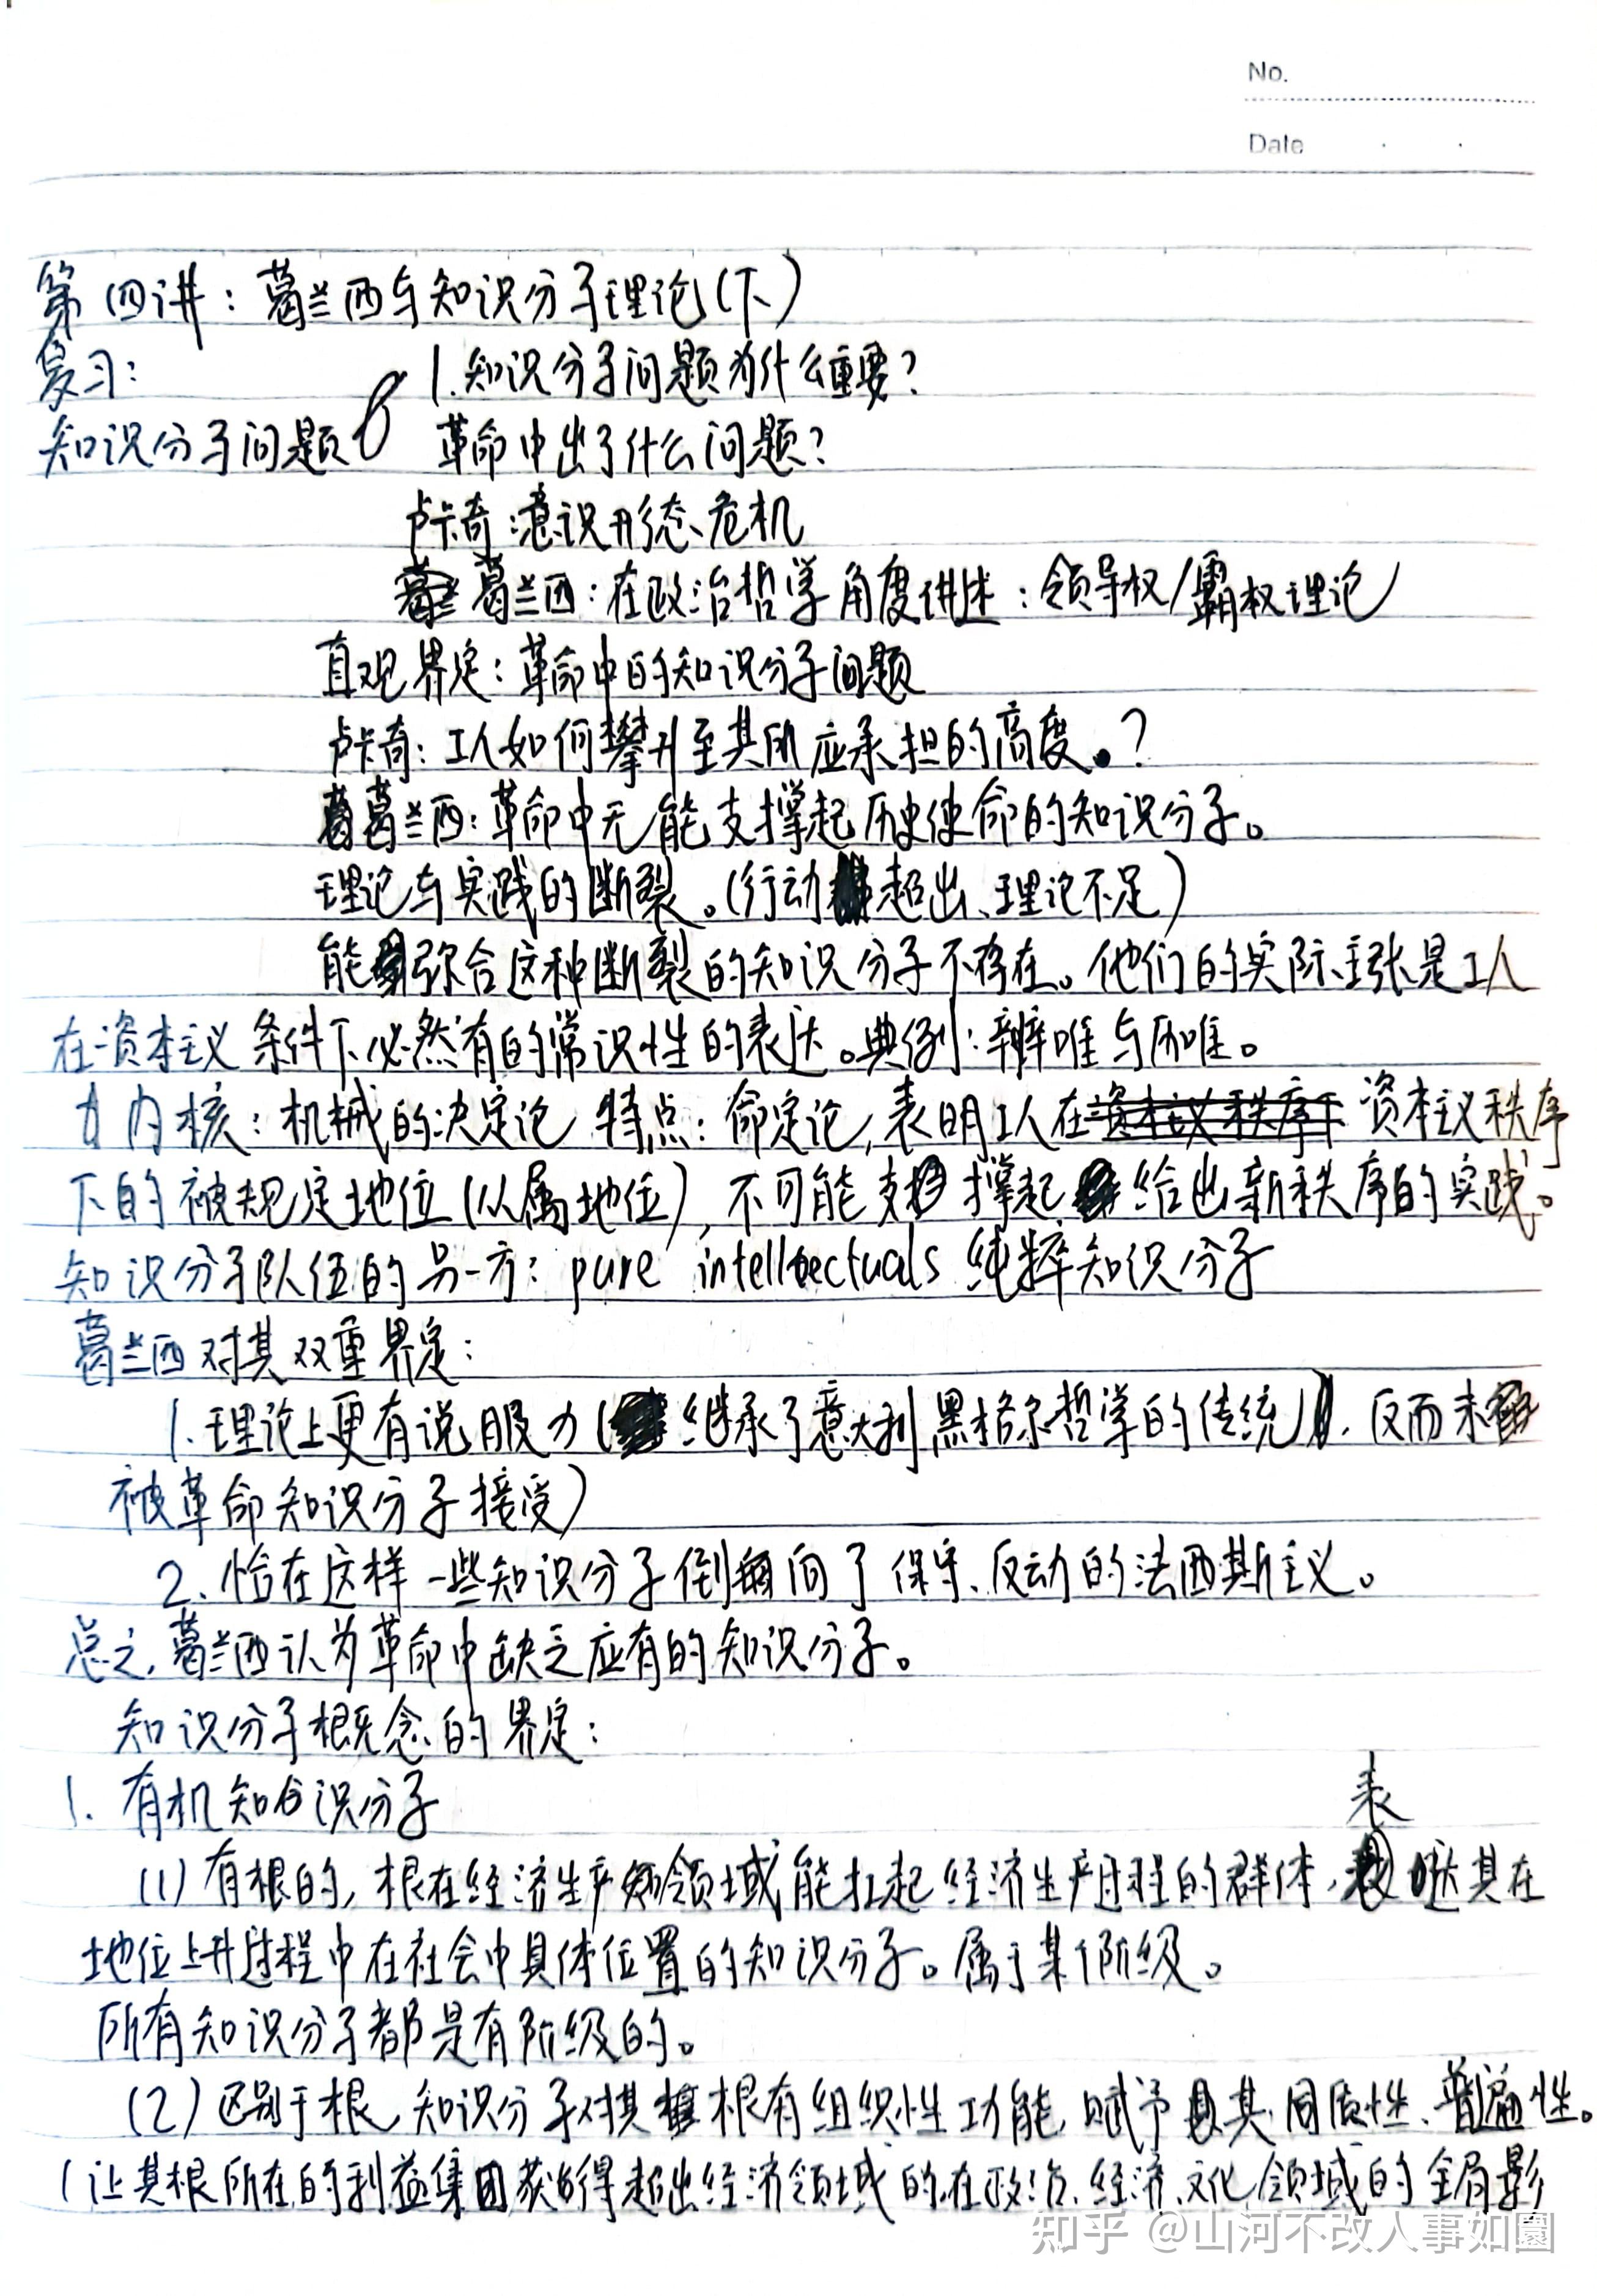 No.
Date
第四讲：葛兰西与知识分子理论(下)
复习：
1.知识分子问题为什么重要？
知识分子问题
革命中出了什么问题？
卢卡奇：意识形态危机
葛兰西：在政治哲学角度讲述：领导权/霸权理论
直观界定：革命中的知识分子问题
卢卡奇：工人如何攀升至其所应承担的高度。？
葛兰西：革命中无能支撑起历史使命的知识分子。
理论与实践的断裂。(行动超出、理论不足)
能弥合这种断裂的知识分子不存在。他们的实际主张是工人
在资本主义条件下必然有的常识性的表达。典例：辩唯与历唯。
内核：机械的决定论 特点：命定论，表明工人在资本主义秩序下 资本主义秩序
下的被规定地位(从属地位)，不可能支撑起给出新秩序的实践。
知识分子队伍的另一方：pure intellectuals 纯粹知识分子
葛兰西对其双重界定：
1.理论上更有说服力(继承了意大利黑格尔哲学的传统)，反而未
被革命知识分子接受)
2、恰在这样一些知识分子倒向了保守、反动的法西斯主义。
总之，葛兰西认为革命中缺乏应有的知识分子。
知识分子概念的界定：
1. 有机知识分子
表
(1)有根的，根在经济生产领域能扛起经济生产过程的群体，达其在
地位上升过程中在社会中具体位置的知识分子。属于某个阶级。
所有知识分子都是有阶级的。
(2)区别于根，知识分子对其根有组织性功能，赋予其同质性、普遍性。
(让其根所在的利益集团获得超出经济领域的在政治、经济、文化领域的全局影
知乎 @山河不改人事如圜